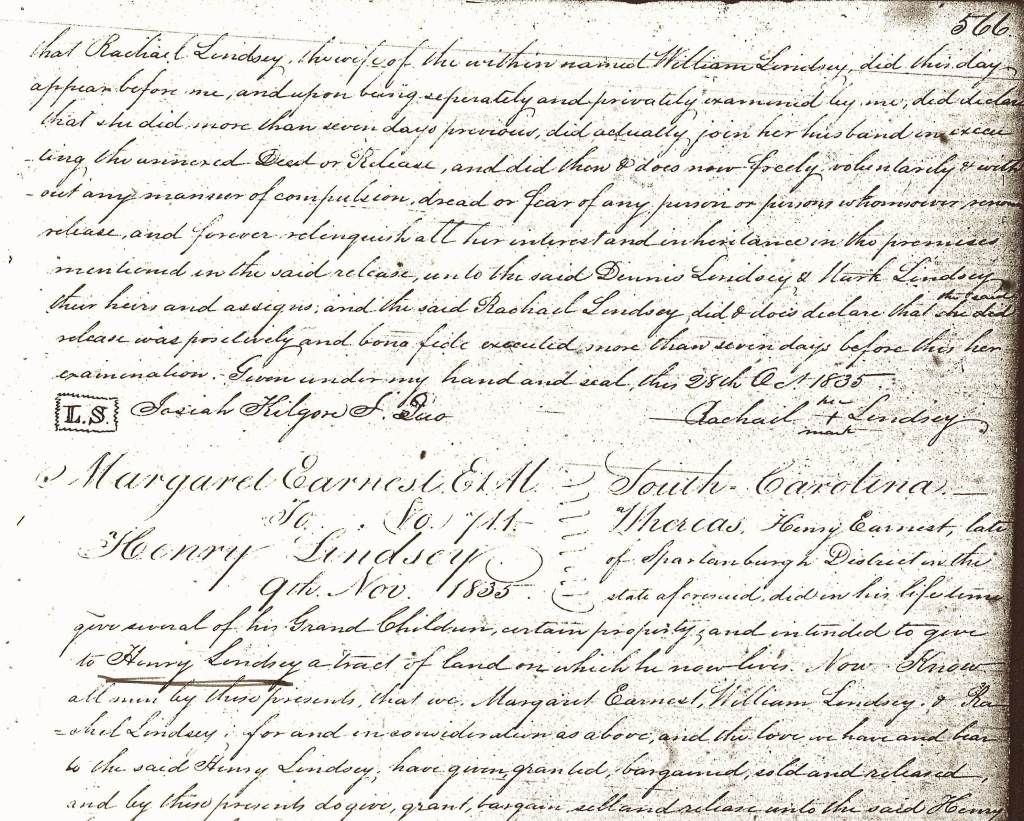 566.
that Rachael Lindsey, the wife of the within named William Lindsey, did this day
appear before me, and upon being seperately and privately examined by me, did declare
that she did more than seven days previous, did actually join her husband in execu
-ting the annexed Deed or Release, and did then & does now freely, voluntarily & with
-out any manner of compulsion, dread or fear of any person or persons whomsoever, renou
release, and forever relinquish all her interest and inheritance in the premises
mentioned in the said release, unto the said Dennis Lindsey & Mark Lindsey
their heirs and assigns; and the said Rachael Lindsey did & does declare that the said she did
release was positively and bona fide executed more than seven days before this her
examination. Given under my hand and seal this 28th Oct 1835.
L.S. Josiah Kilgore J. Quo Rachael her + mark Lindsey
Margaret Earnest, Et Al.
To No. 711.
Henry Lindsey
9th. Nov. 1835.
South-Carolina.
Whereas, Henry Earnest, late
of Spartanburgh District in the
state aforesaid, did in his life time
give several of his Grand Children, certain property; and intended to give
to Henry Lindsey a tract of land on which he now lives. Now Know
all men by these presents, that we, Margaret Earnest, William Lindsey & Ra-
=chel Lindsey, for and in consideration as above, and the love we have and bear
to the said Henry Lindsey, have given, granted, bargained, sold and released,
and by these presents do give, grant, bargain sell and release unto the said Henry